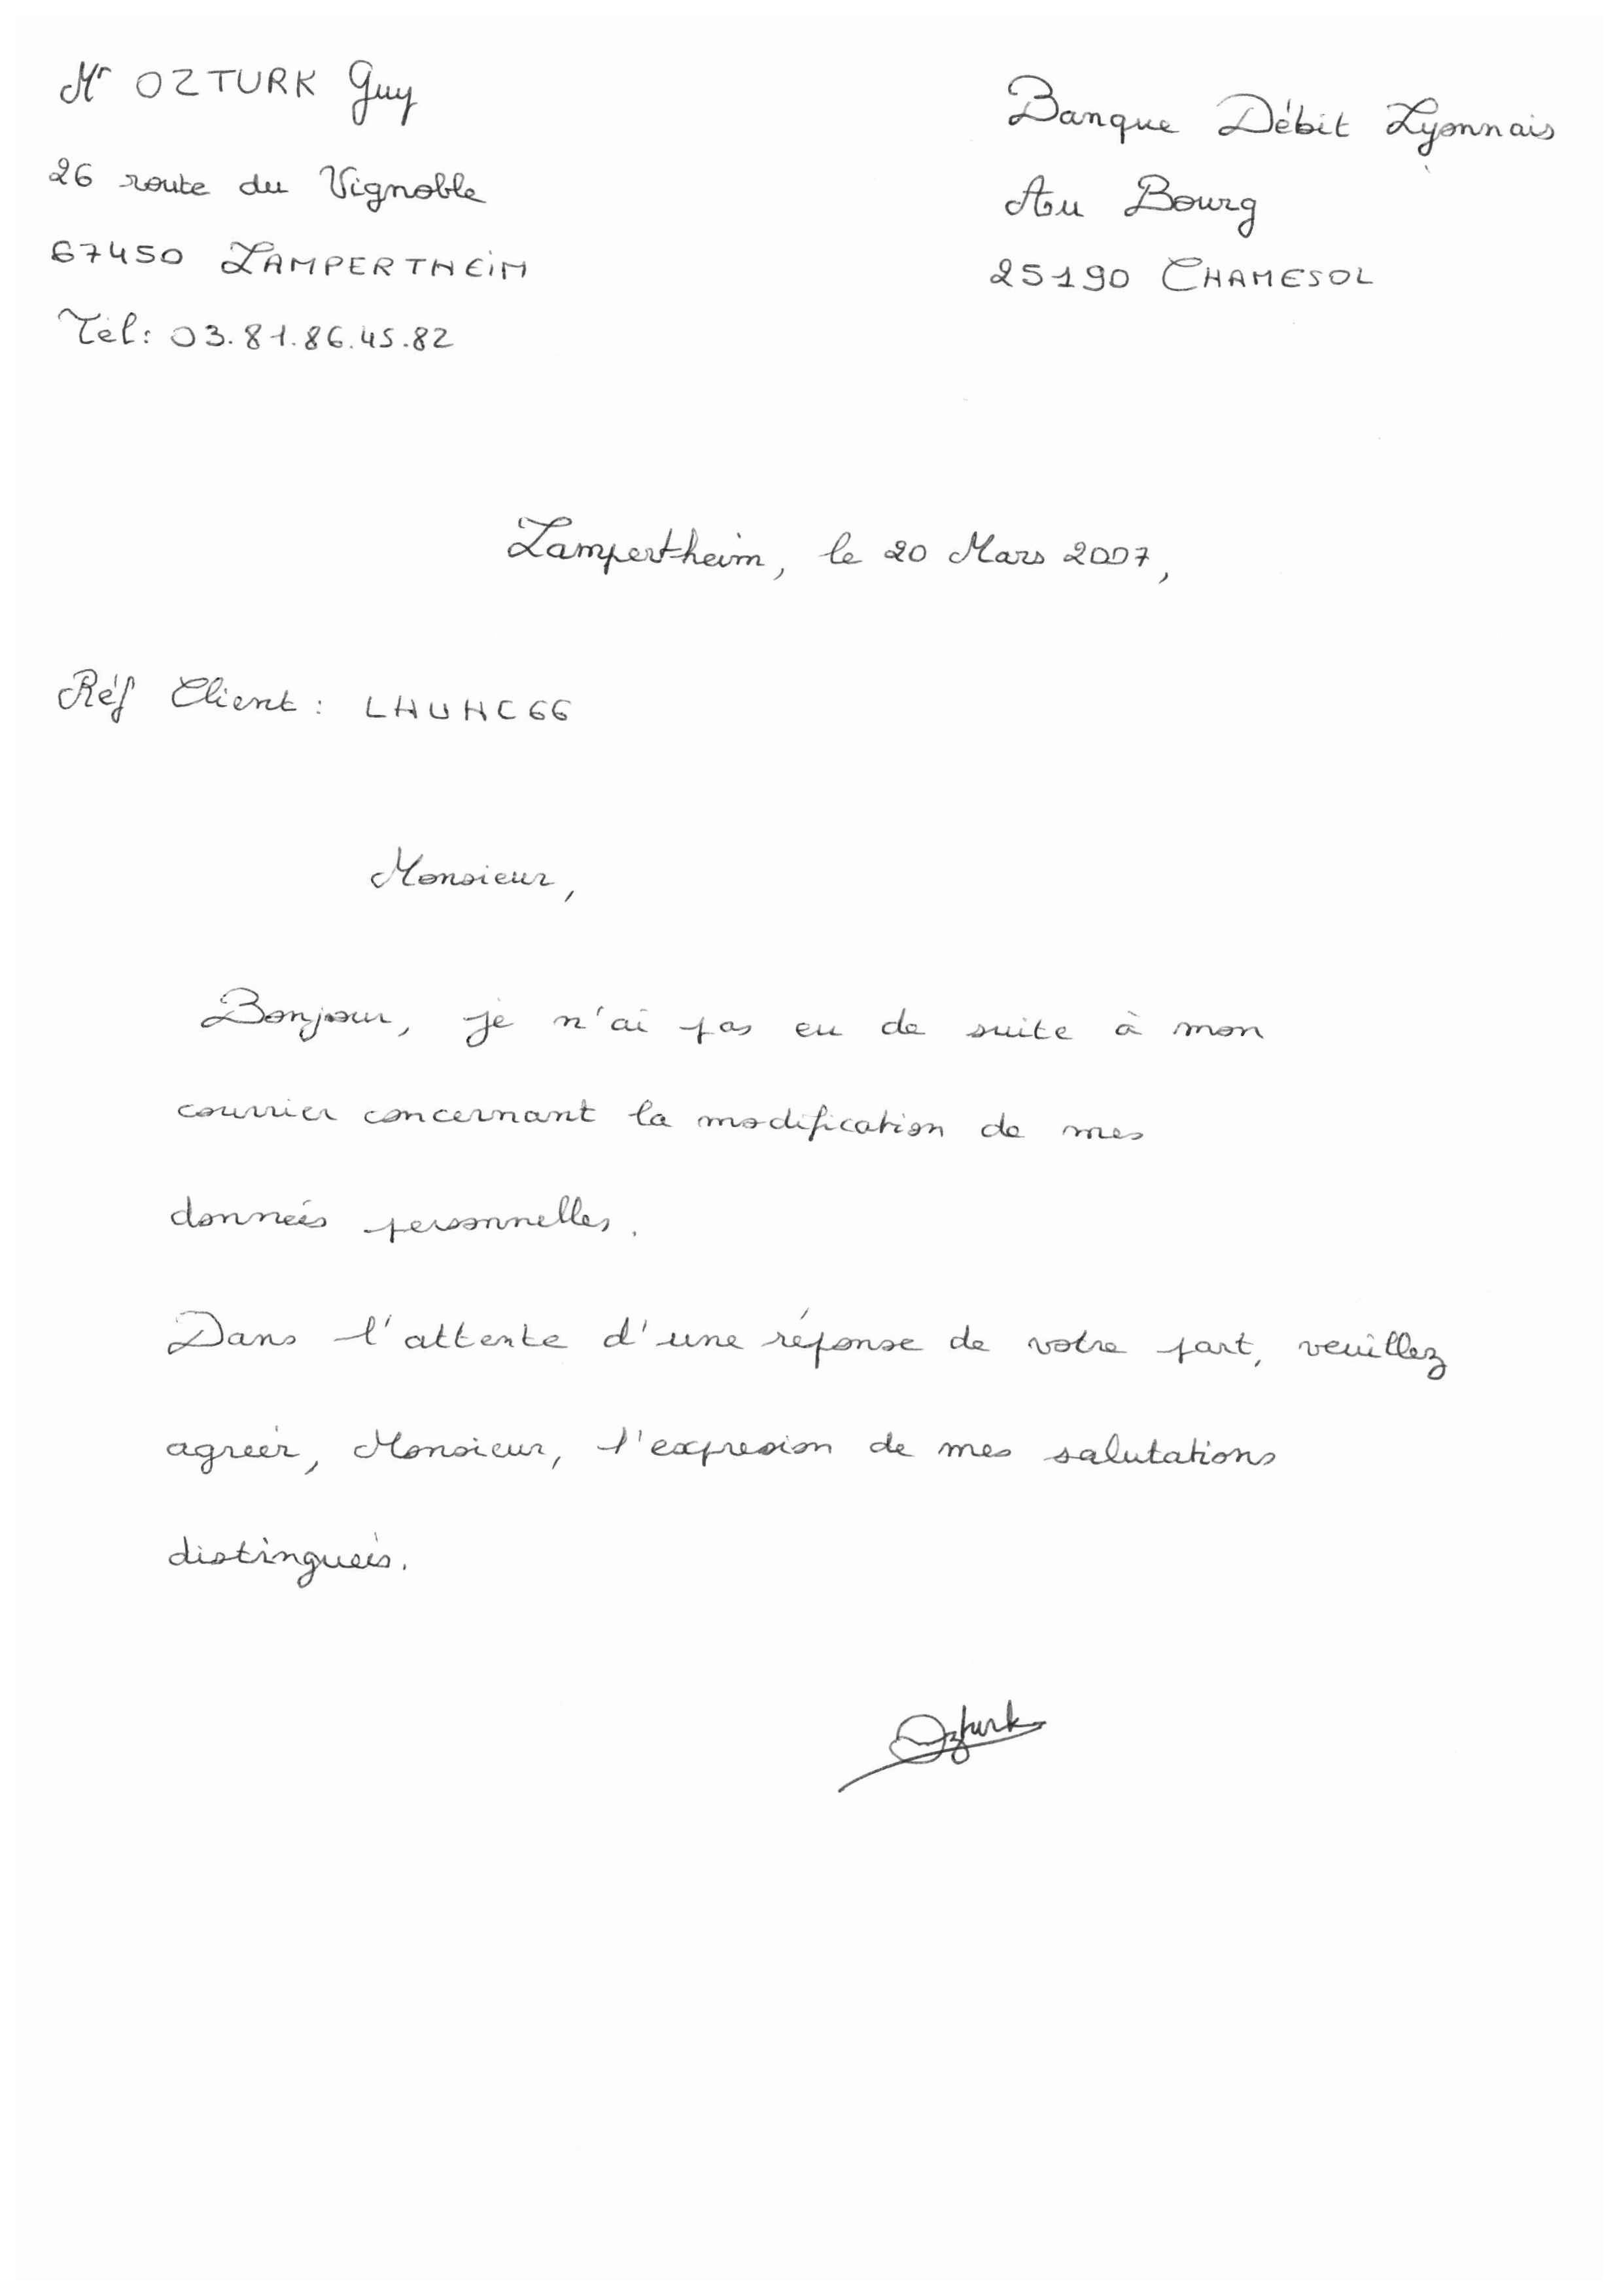 Mr OZTURK Guy
26 route du Vignoble
67450 LAMPERTHEIM
Tél: 03.81.86.45.82
Banque Débit Lyonnais
Au Bourg
25190 CHAMESOL
Lampertheim, le 20 Mars 2007,
Réf Client : LHUHC66
Monsieur,
Bonjour, je n'ai pas eu de suite à mon
courrier concernant la modification de mes
données personnelles.
Dans l'attente d'une réponse de votre part, veuillez
agréer, Monsieur, l'expresion de mes salutations
distinguées.
Ozturk